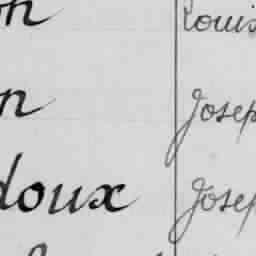 on Louis
n Josep
doux Josep